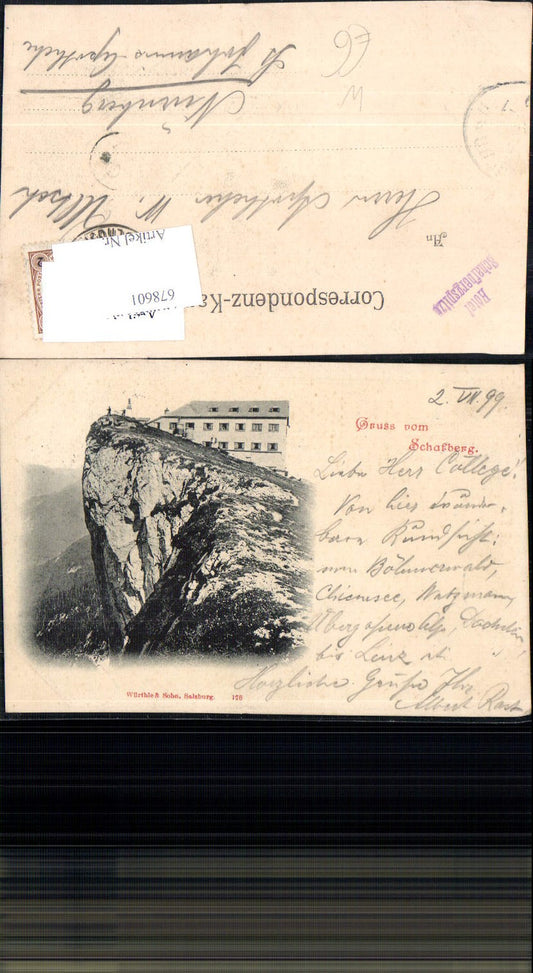 Correspondenz-Ka
An
Herrn Apotheker W.
Nürnberg
St Johannis Apotheke
Hotel
Schafbergspitze
Artikel Nr.
678601
2. VII. 99.
Gruss vom
Schafberg.
Lieber Herr College!
Von hier wunder-
bare Rundsicht:
vom Böhmerwald,
Chiemsee, Watzmann,
Übergossene Alp, Dachstein,
bis Linz
Herzliche Grüße Ihr
Albert
Würthle & Sohn, Salzburg. 178